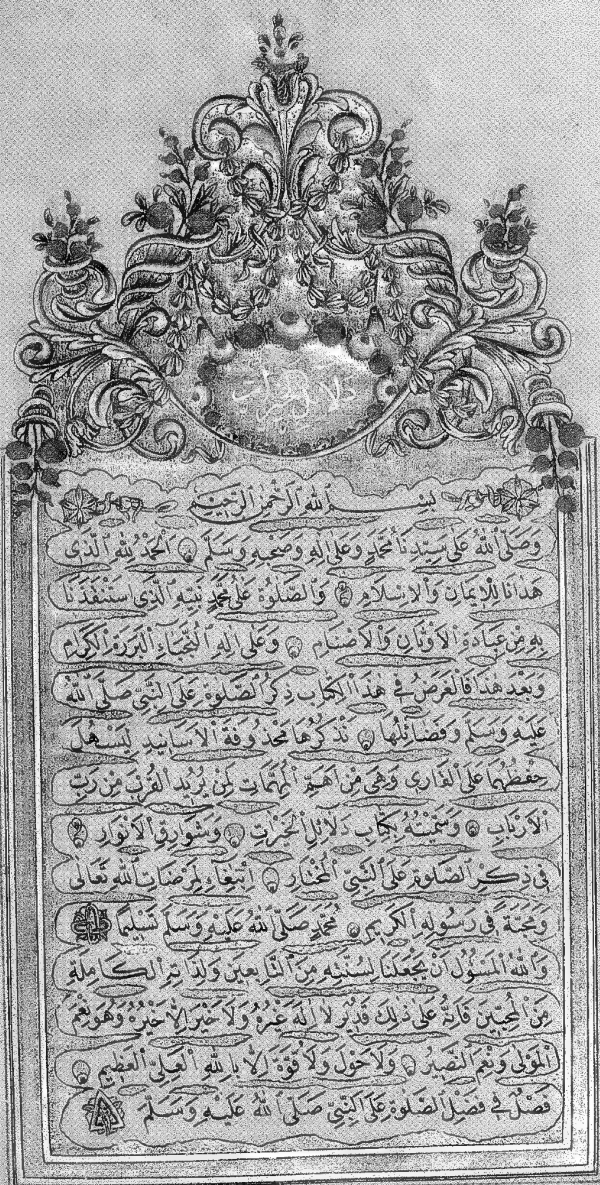 دلائل الخيرات
بِسْمِ ٱللّٰهِ ٱلرَّحْمٰنِ ٱلرَّحِيمِ
وَصَلَّى ٱللّٰهُ عَلَى سَيِّدِنَا مُحَمَّدٍ وَعَلَى اٰلِهِ وَصَحْبِهِ وَسَلَّمَ اَلْحَمْدُ لِلّٰهِ ٱلَّذِى
هَدَانَا لِلْاِيمَانِ وَٱلْاِسْلَامِ وَٱلصَّلٰوةُ عَلَى مُحَمَّدٍ نَبِيِّهِ ٱلَّذِى ٱسْتَنْقَذَنَا
بِهِ مِنْ عِبَادَةِ ٱلْاَوْثَانِ وَٱلْاَصْنَامِ وَعَلَى اٰلِهِ ٱلنُّجَبَاءِ ٱلْبَرَرَةِ ٱلْكِرَامِ
وَبَعْدَ هٰذَا فَٱلْغَرَضُ فِى هٰذَا ٱلْكِتَابِ ذِكْرُ ٱلصَّلٰوةِ عَلَى ٱلنَّبِىِّ صَلَّى ٱللّٰهُ
عَلَيْهِ وَسَلَّمَ وَفَضَائِلُهَا نَذْكُرُهَا مَحْذُوفَةَ ٱلْاَسَانِيدِ لِيَسْهُلَ
حِفْظُهَا عَلَى ٱلْقَارِى وَهِىَ مِنْ اَهَمِّ ٱلْمُهِمَّاتِ لِمَنْ يُرِيدُ ٱلْقُرْبَ مِنْ رَبِّ
ٱلْاَرْبَابِ وَسَمَّيْتُهُ بِكِتَابِ دَلَائِلِ ٱلْخَيْرَاتِ وَشَوَارِقِ ٱلْاَنْوَارِ
فِى ذِكْرِ ٱلصَّلٰوةِ عَلَى ٱلنَّبِىِّ ٱلْمُخْتَارِ اِبْتِغَاءً لِمَرْضَاتِ ٱللّٰهِ تَعَالَى
وَمَحَبَّةً فِى رَسُولِهِ ٱلْكَرِيمِ مُحَمَّدٍ صَلَّى ٱللّٰهُ عَلَيْهِ وَسَلَّمَ تَسْلِيمًا
وَٱللّٰهُ ٱلْمَسْؤُلُ اَنْ يَجْعَلَنَا لِسُنَّتِهِ مِنَ ٱلتَّابِعِينَ وَلِذَاتِهِ ٱلْكَامِلَةِ
مِنَ ٱلْمُحِبِّينَ فَاِنَّهُ عَلَى ذٰلِكَ قَدِيرٌ لَا اِلٰهَ غَيْرُهُ وَلَا خَيْرَ اِلَّا خَيْرُهُ وَهُوَ نِعْمَ
ٱلْمَوْلَى وَنِعْمَ ٱلنَّصِيرُ وَلَا حَوْلَ وَلَا قُوَّةَ اِلَّا بِاللّٰهِ ٱلْعَلِىِّ ٱلْعَظِيمِ
فَصْلٌ فِى فَضْلِ ٱلصَّلٰوةِ عَلَى ٱلنَّبِىِّ صَلَّى ٱللّٰهُ عَلَيْهِ وَسَلَّمَ